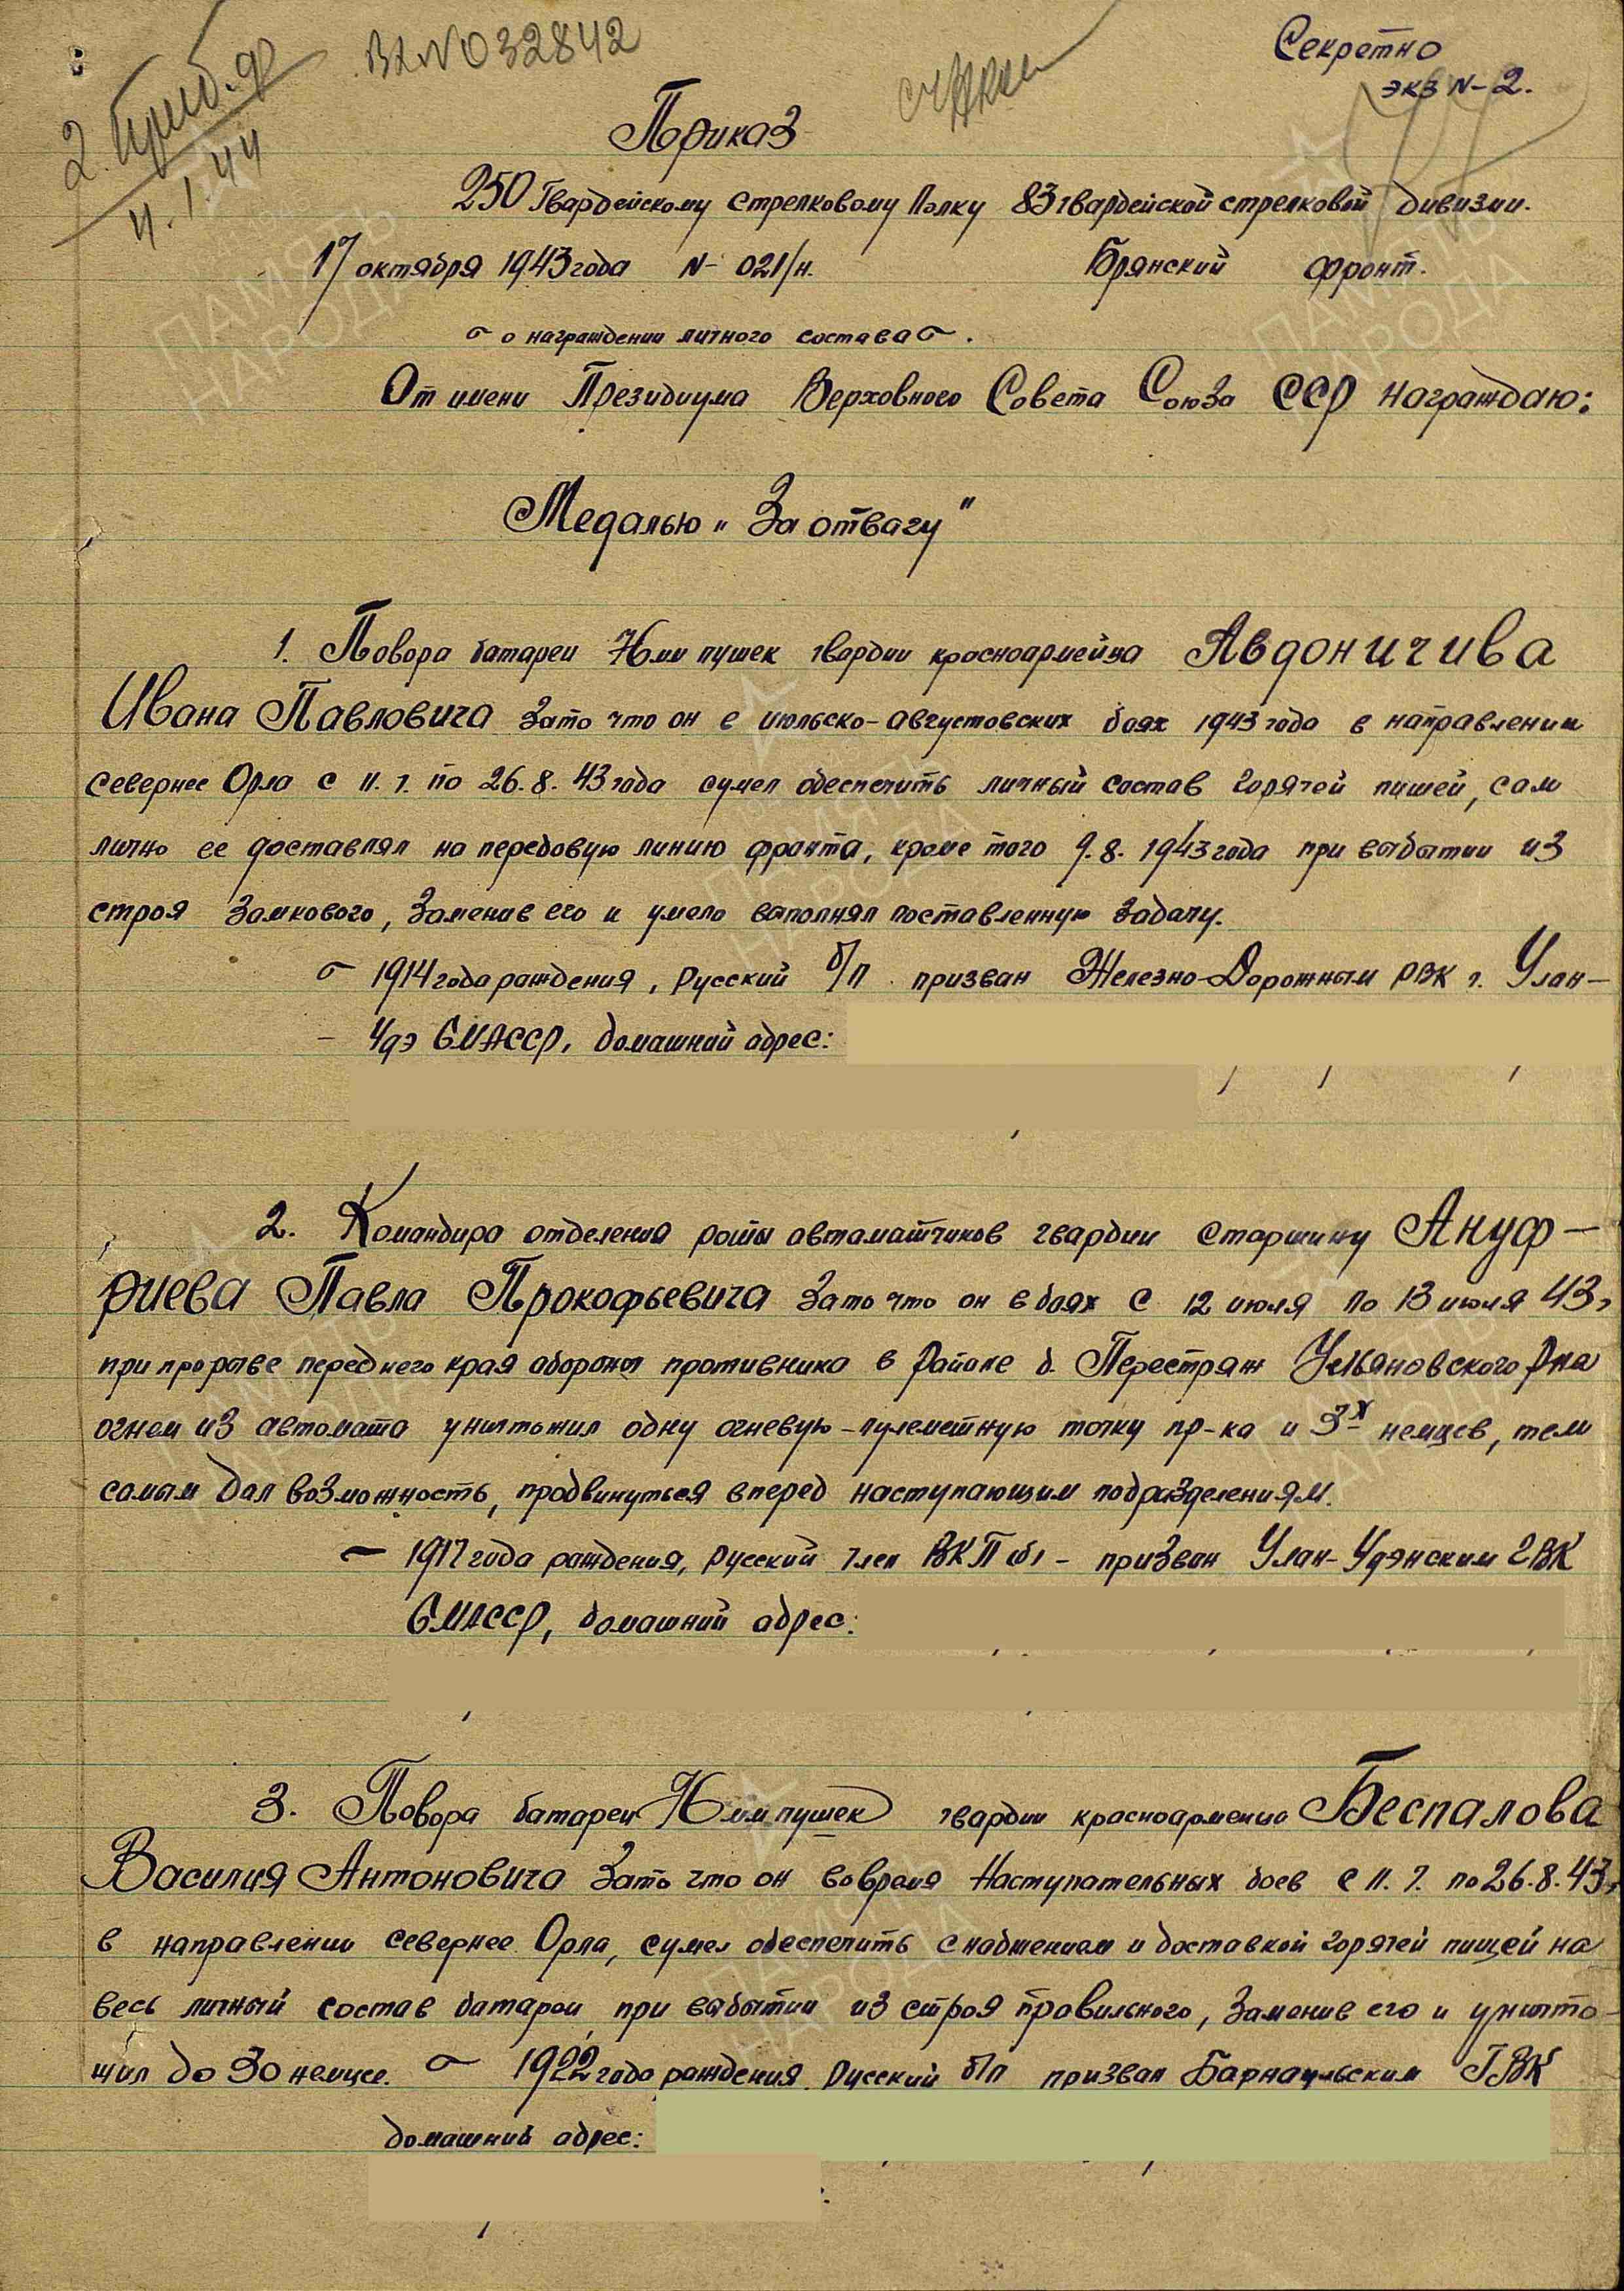 ВхN032842
Секретно
экз N-2.
4.1.44
Приказ
250 Гвардейскому стрелковому Полку 83 гвардейской стрелковой дивизии.
17 октября 1943 года N- 021/н. Брянский фронт.
о награждении личного состава.
От имени Президиума Верховного Совета Союза ССР награждаю:
Медалью „За отвагу"
1. Повора батареи 76мм пушек гвардии красноармейца Авдоничива
Ивана Павловича Зато что он в июльско-августовских боях 1943 года в направлении
севернее Орла с 11.7. по 26.8.43 года сумел обеспечить личный состав горячей пишей, сам
лично ее доставлял на передовую линию фронта, кроме того 9.8.1943 года при выбытии из
строя Замкового, Заменив его и умело выполнял поставленную Задачу.
1914 года рождения, Русский б/п призван Железно-Дорожным РВК г. Улан-
- Удэ БМАССР, домашний адрес:
2. Командира отделения роты автоматчиков гвардии старшину Ануф-
риева Павла Прокофьевича Зато что он в боях с 12 июля по 13 июля 43г
при прорыве переднего края обороны противника в Районе д. Перестряж Ульяновского Р-на
огнем из автомата уничтожил одну огневую-пулеметную точку пр-ка и 3х немцев, тем
самым дал возможность, продвинуться вперед наступающим подразделениям.
- 1917 года рождения, Русский член ВКП(б) - призван Улан-Удэнским ГВК
БМАССР, домашний адрес:
3. Повора батареи 76мм пушек гвардии красноармейца Беспалова
Василия Антоновича Зато что он вовремя наступательных боев с 11.7. по 26.8.43г
в направлении севернее Орла, сумел обеспечить снабжением и доставкой горячей пищей на
весь личный состав батареи, при выбытии из строя правильного, Заменив его и уничто-
жил до 30 немцев. 1922 года рождения, Русский б/п призван Барнаульским ГВК
домашний адрес:
ПАМЯТЬ
НАРОДА